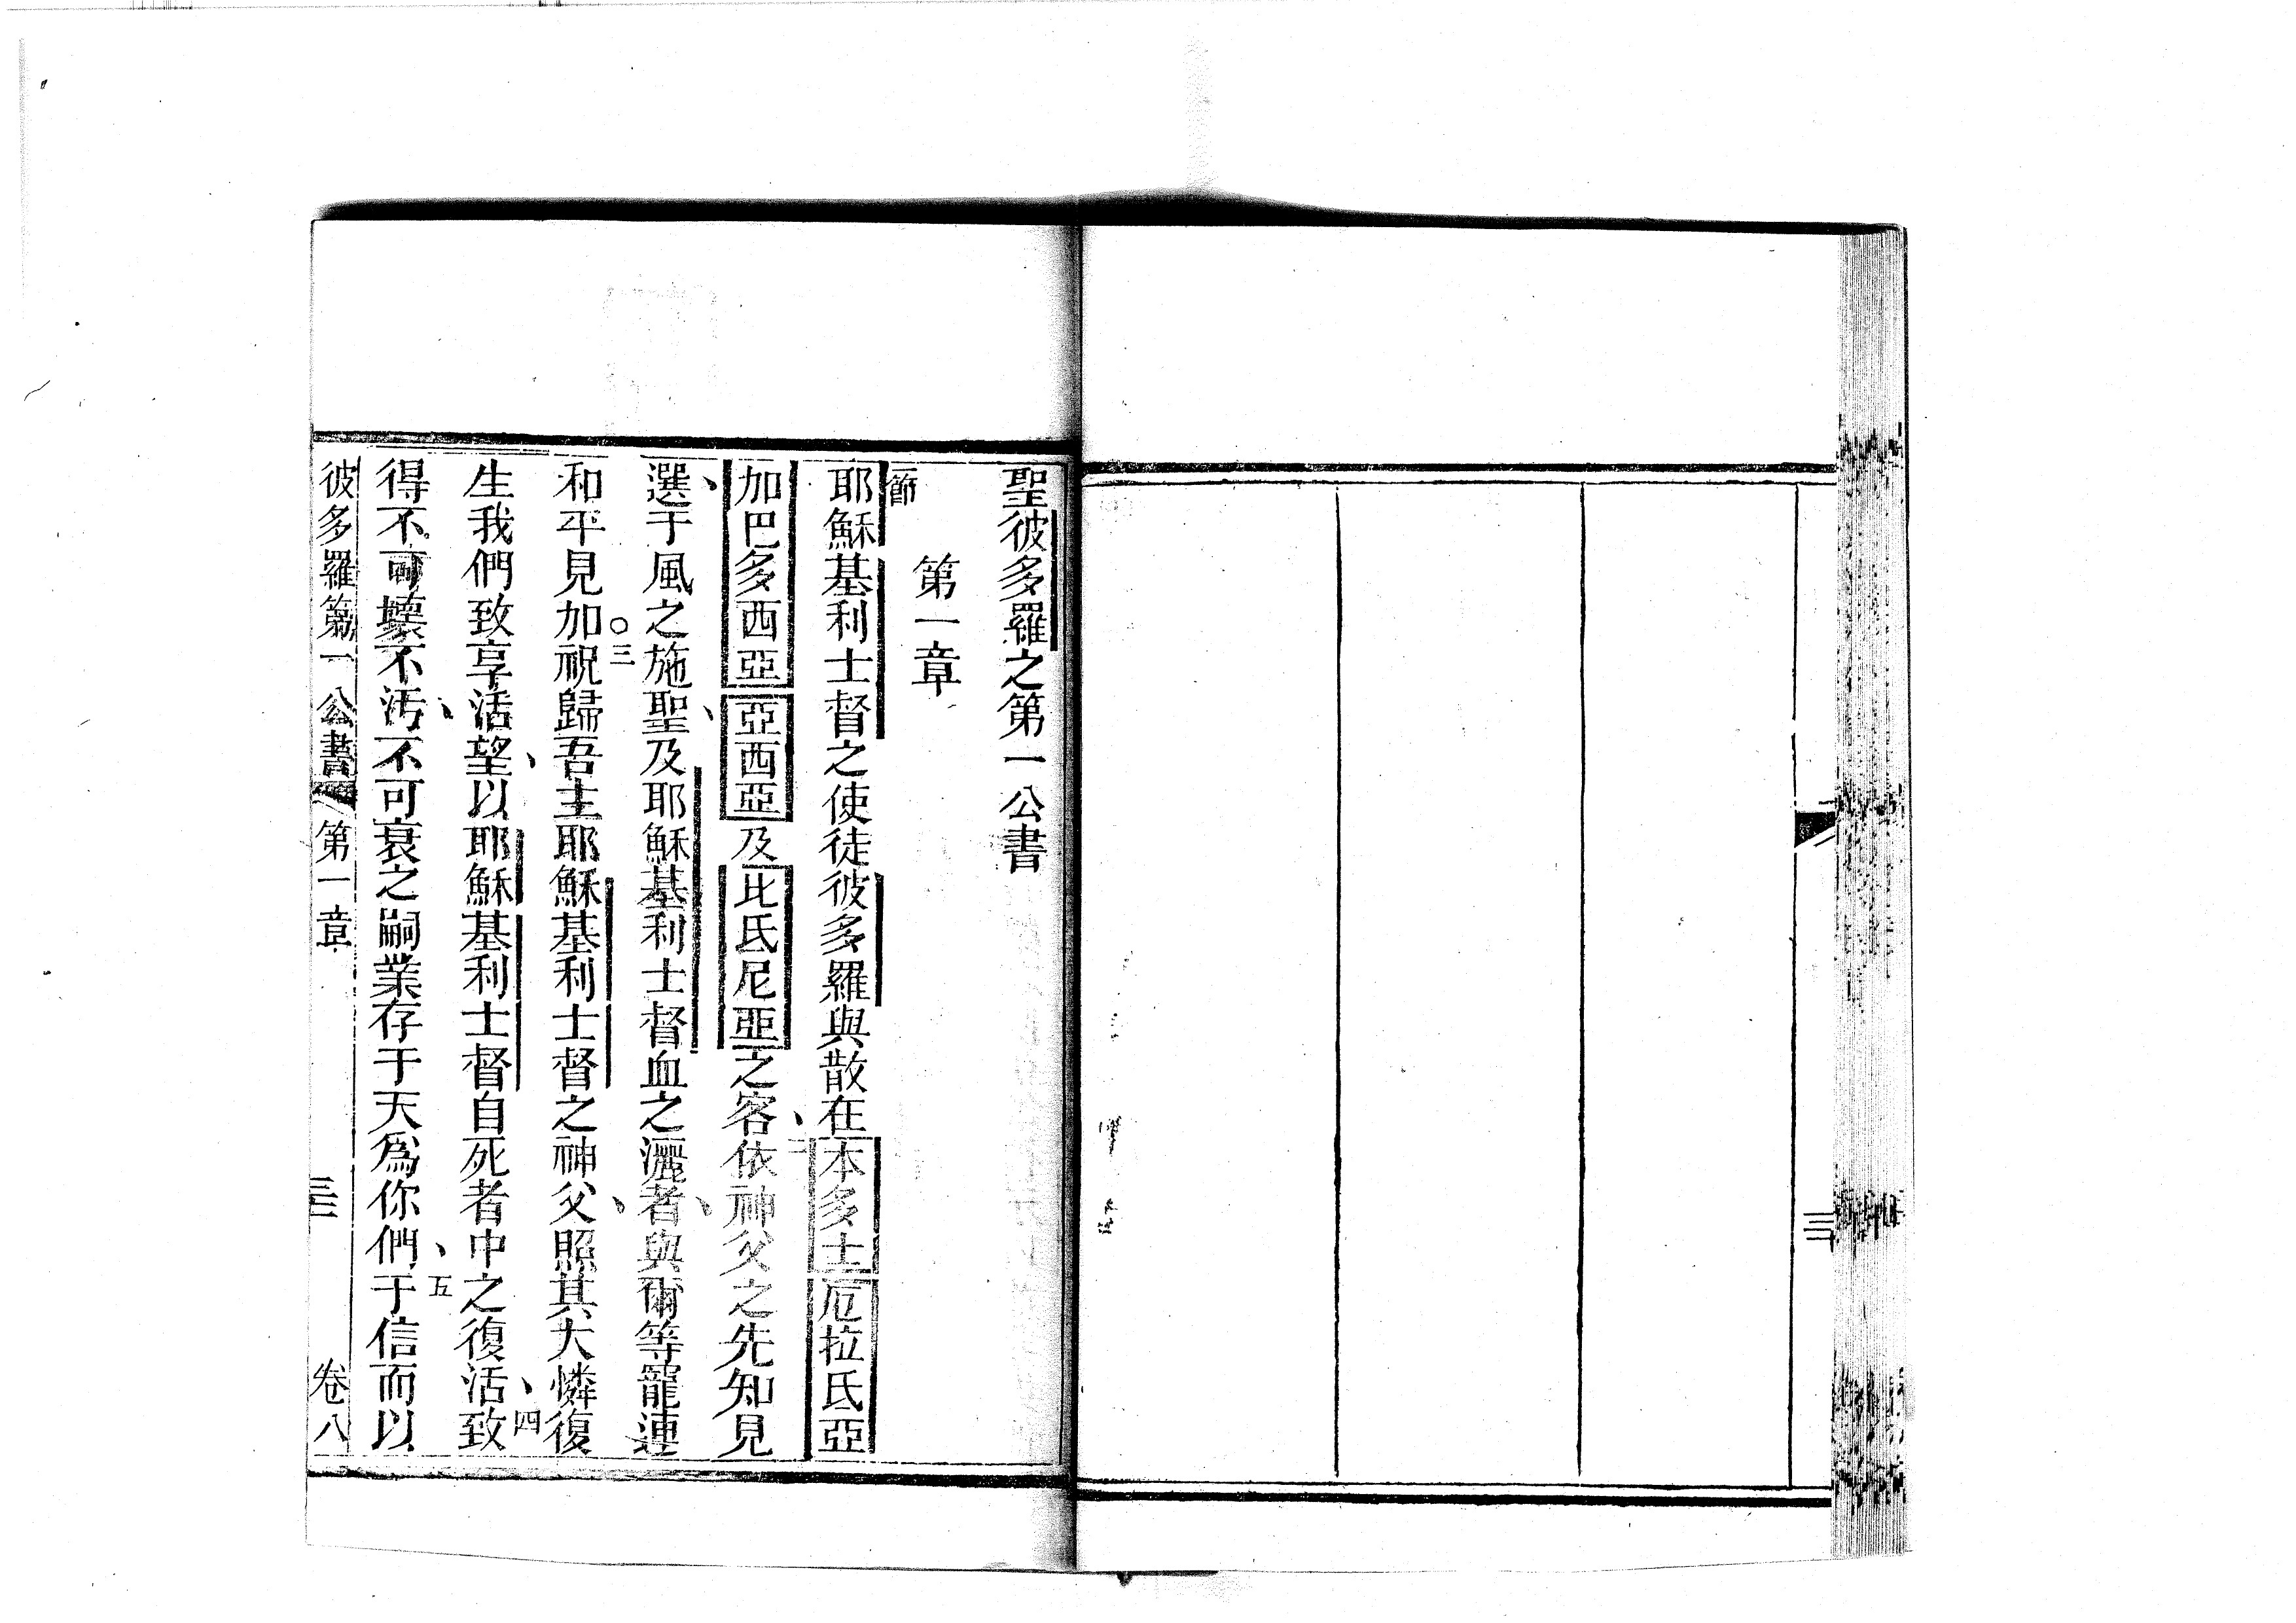 聖彼多羅之第一公書
第一章
一節
耶穌基利士督之使徒彼多羅與散在本多士厄拉氏亞
加巴多西亞亞西亞及比氏尼亞之客、二依神父之先知見
選、于風之施聖、及耶穌基利士督血之灑者、與爾等寵連
和平見加○三祝歸吾主耶穌基利士督之神父、照其大憐復
生我們致享活望、以耶穌基利士督自死者中之復活、四致
得不可壞不汚、不可衰之嗣業存于天爲你們、五于信而以
彼多羅第一公書 第一章 三 卷八
三